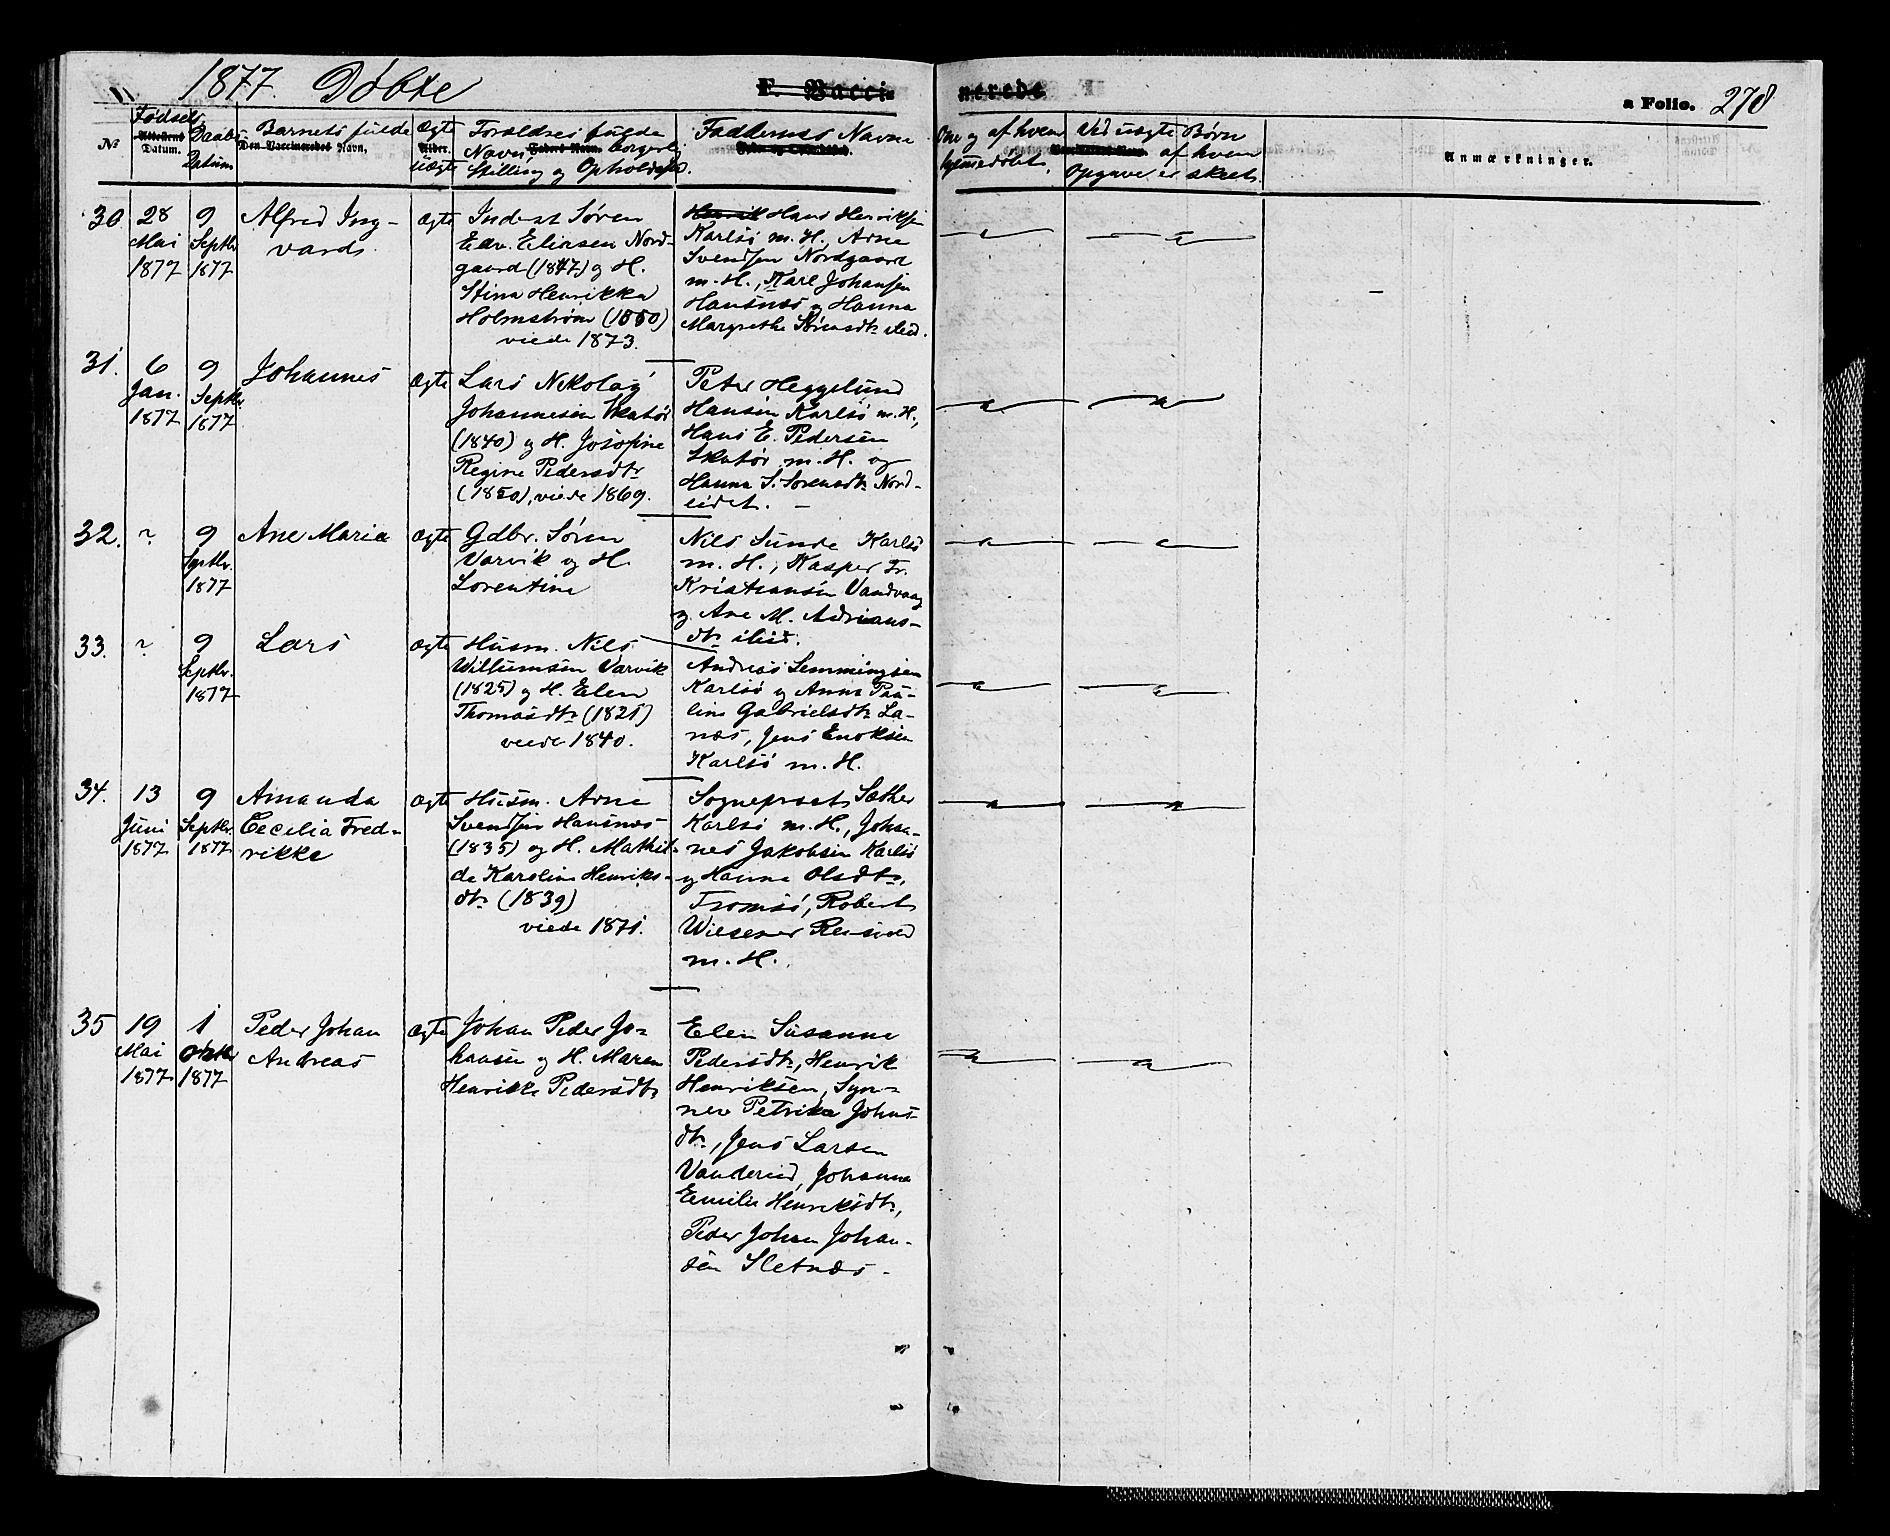 1877. Döbte
F. Vaccinerede
a Folio. 278
№
Fødsels
Attestens Datum.
Daabs Datum
Barnets fulde
Den Vaccineredes Navn,
Ægte
Alder.
Uægte
Forældres fulde
Navn, Faders Navn. borgerl.
Stilling og Opholdssted.
Faddernes Navne
Om og af hvem
hjemmedøbt.
Ved uægte Børn
af hvem
Opgave er skeet.
Anmærkninger.
30 28 Mai 1877
9 Septbr 1877
Alfred Ing-
vards
Ægte
Inderst Søren
Edv. Eliasen Nord-
gaard (1847) og H.
Stina Henrikka
Holmstrøm (1850)
viede 1873.
Henrik Hans Henriksen
Karlsö m. H., Arne
Svendsen Nordgaard
m. H., Karl Johansen
Hansnæs og Hanna
Margrethe Sörensdtr. ibid.
31. 6 Jan. 1877
9 Septbr. 1877
Johannes
Ægte
Lars Nikolay
Johannesen Skatör
(1840) og H. Josefine
Regine Pedersdtr
(1850), viede 1869.
Peter Heggelund
Hansen Karlsö m. H.,
Hans E. Pedersen
Skatör m. H. og
Hanna S. Sorensdtr. Nord-
eidet. –
32. ?
9 Septbr. 1877
Ane Maria
Ægte
Gdbr. Sören
Varvik og H.
Lorentine
Nils Sunde Karlsö
m. H., Kasper Fr.
Kristiansen Vandvaag
og Ane M. Adrians-
dtr. ibid.
33. ?
9 Septbr. 1877
Lars
Ægte
Husm. Nils
Willumsen Varvik
(1825) og H. Elen
Thomasdtr. (1821)
viede 1840.
Andreas Lemmingsen
Karlsö og Anna Pau-
line Gabrielsdtr. La-
næs, Jens Enoksen
Karlsö m. H.
34. 13 Juni 1877
9 Septbr. 1877
Amanda
Cecilia Fred-
rikke
Ægte
Husm. Arne
Svendsen Hansnæs
(1835) og H. Mathil-
de Karoline Henriks-
dtr. (1839)
viede 1871.
Sognepræst Sæther
Karlsö m. H., Joha-
nes Jakobsen Karlsö
og Hanna Olsdtr.,
Tromsö, Robert
Wiesener Reisund
m. H.
35 19 Mai 1877
1 Oktbr 1877
Peder Johan
Andreas
Ægte
Johan Peder Jo-
hansen og H. Maren
Henrikke Pedersdtr.
Elen Susanne
Pedersdtr., Henrik
Henriksen, Syn-
nev Petrika Johns-
dtr., Jens Larsen
Vandereid, Johanna
Emilie Henriksdtr.,
Peder Johan Johan-
sen Sletnæs.